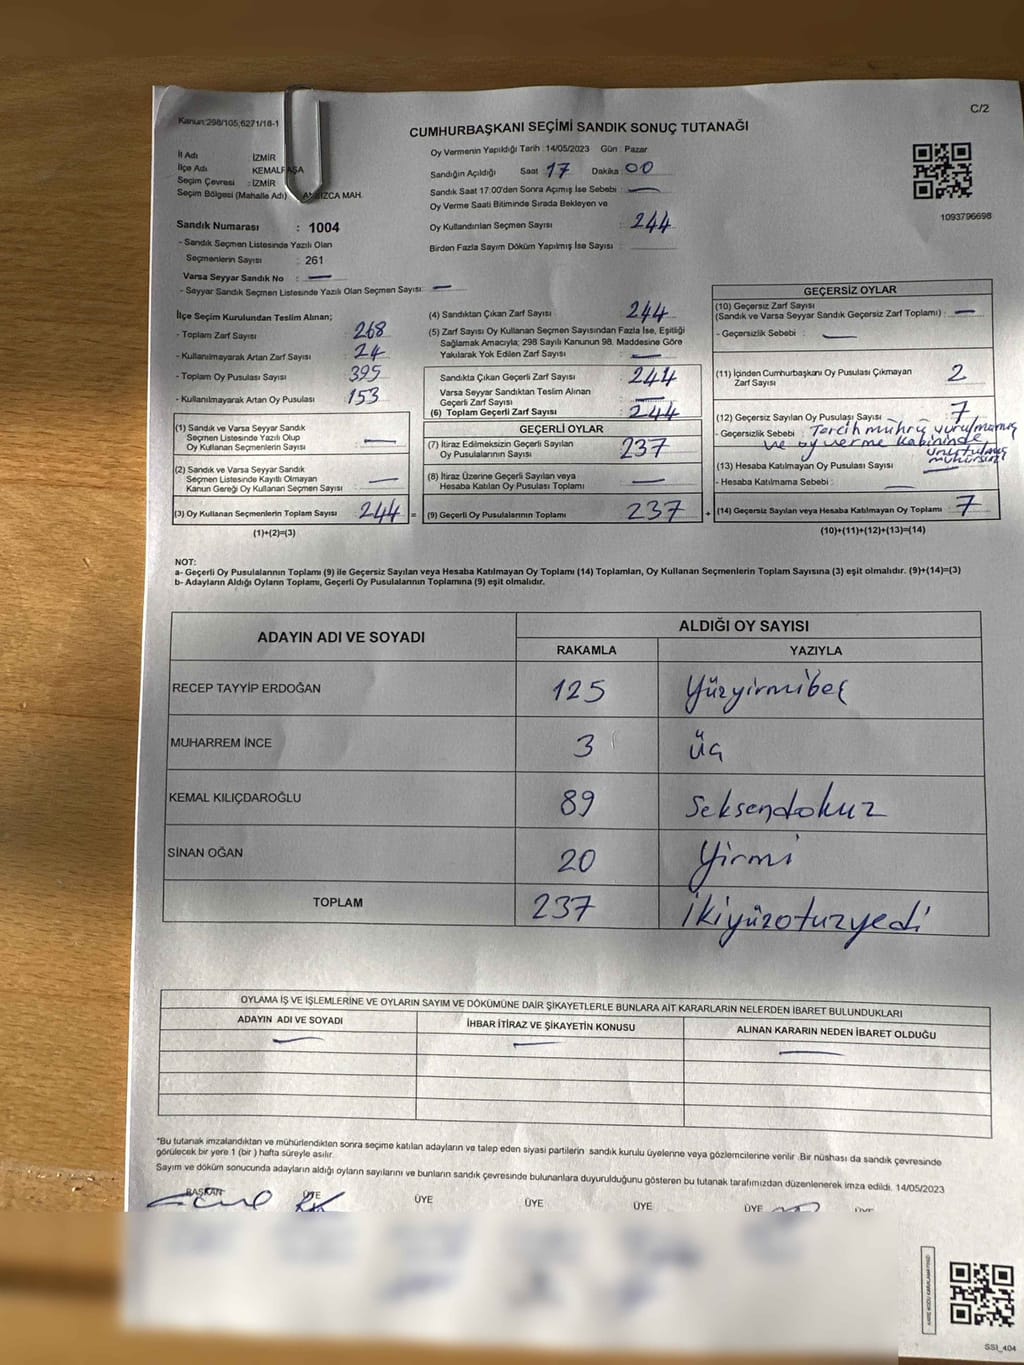 C/2
Kanun:298/105,6271/16-1
CUMHURBAŞKANI SEÇİMİ SANDIK SONUÇ TUTANAĞI
İl Adı İZMİR
İlçe Adı KEMALPAŞA
Seçim Çevresi : İZMİR
Seçim Bölgesi (Mahalle Adı) MAH.
Oy Vermenin Yapıldığı Tarih : 14/05/2023 Gün : Pazar
Sandığın Açıldığı Saat 17 Dakika 00
Sandık Saat 17:00'den Sonra Açımış İse Sebebi : —
Oy Verme Saati Bitiminde Sırada Bekleyen ve
Oy Kullandırılan Seçmen Sayısı : 244
Birden Fazla Sayım Döküm Yapılmış İse Sayısı :
1093796698
Sandık Numarası : 1004
- Sandık Seçmen Listesinde Yazılı Olan
Seçmenlerin Sayısı : 261
Varsa Seyyar Sandık No : —
- Seyyar Sandık Seçmen Listesinde Yazılı Olan Seçmen Sayısı: —
İlçe Seçim Kurulundan Teslim Alınan;
- Toplam Zarf Sayısı 268
- Kullanılmayarak Artan Zarf Sayısı 24
- Toplam Oy Pusulası Sayısı 395
- Kullanılmayarak Artan Oy Pusulası 153
(1) Sandık ve Varsa Seyyar Sandık
Seçmen Listesinde Yazılı Olup
Oy Kullanan Seçmen Sayısı —
(2) Sandık ve Varsa Seyyar Sandık
Seçmen Listesinde Kayıtlı Olmayan
Kanun Gereği Oy Kullanan Seçmen Sayısı —
(3) Oy Kullanan Seçmenlerin Toplam Sayısı : 244 =
(1)+(2)=(3)
(4) Sandıktan Çıkan Zarf Sayısı 244
(5) Zarf Sayısı Oy Kullanan Seçmen Sayısından Fazla İse, Eşitliği
Sağlamak Amacıyla; 298 Sayılı Kanunun 98. Maddesine Göre
Yakılarak Yok Edilen Zarf Sayısı —
Sandıkta Çıkan Geçerli Zarf Sayısı 244
Varsa Seyyar Sandıktan Teslim Alınan
Geçerli Zarf Sayısı —
(6) Toplam Geçerli Zarf Sayısı 244
GEÇERLİ OYLAR
(7) İtiraz Edilmeksizin Geçerli Sayılan
Oy Pusulalarının Sayısı 237
(8) İtiraz Üzerine Geçerli Sayılan veya
Hesaba Katılan Oy Pusulası Toplamı —
(9) Geçerli Oy Pusulalarının Toplamı 237 +
GEÇERSİZ OYLAR
(10) Geçersiz Zarf Sayısı
(Sandık ve Varsa Seyyar Sandık Geçersiz Zarf Toplamı) : —
- Geçersizlik Sebebi : —
(11) İçinden Cumhurbaşkanı Oy Pusulası Çıkmayan
Zarf Sayısı 2
(12) Geçersiz Sayılan Oy Pusulası Sayısı 7
- Geçersizlik Sebebi : Tercih mührü vurulmamış
ve oy verme kabininde,
unutulmuş
mühürsüz
(13) Hesaba Katılmayan Oy Pusulası Sayısı —
- Hesaba Katılmama Sebebi : —
(14) Geçersiz Sayılan veya Hesaba Katılmayan Oy Toplamı : 7
(10)+(11)+(12)+(13)=(14)
NOT:
a- Geçerli Oy Pusulalarının Toplamı (9) ile Geçersiz Sayılan veya Hesaba Katılmayan Oy Toplamı (14) Toplamları, Oy Kullanan Seçmenlerin Toplam Sayısına (3) eşit olmalıdır. (9)+(14)=(3)
b- Adayların Aldığı Oyların Toplamı, Geçerli Oy Pusulalarının Toplamına (9) eşit olmalıdır.
ADAYIN ADI VE SOYADI ALDIĞI OY SAYISI
RAKAMLA YAZIYLA
RECEP TAYYİP ERDOĞAN 125 Yüzyirmibeş
MUHARREM İNCE 3 üç
KEMAL KILIÇDAROĞLU 89 Seksendokuz
SİNAN OĞAN 20 Yirmi
TOPLAM 237 İkiyüzotuzyedi
OYLAMA İŞ VE İŞLEMLERİNE VE OYLARIN SAYIM VE DÖKÜMÜNE DAİR ŞİKAYETLERLE BUNLARA AİT KARARLARIN NELERDEN İBARET BULUNDUKLARI
ADAYIN ADI VE SOYADI İHBAR İTİRAZ VE ŞİKAYETİN KONUSU ALINAN KARARIN NEDEN İBARET OLDUĞU
— — —
*Bu tutanak imzalandıktan ve mühürlendikten sonra seçime katılan adayların ve talep eden siyasi partilerin sandık kurulu üyelerine veya gözlemcilerine verilir .Bir nüshası da sandık çevresinde
görülecek bir yere 1 (bir ) hafta süreyle asılır.
Sayım ve döküm sonucunda adayların aldığı oyların sayılarını ve bunların sandık çevresinde bulunanlara duyurulduğunu gösteren bu tutanak tarafımızdan düzenlenerek imza edildi. 14/05/2023
BAŞKAN ÜYE ÜYE ÜYE ÜYE ÜYE ÜYE
SSI_404